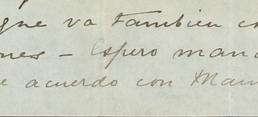 que va tambien
nes – Espero man
e acuerdo con Mam